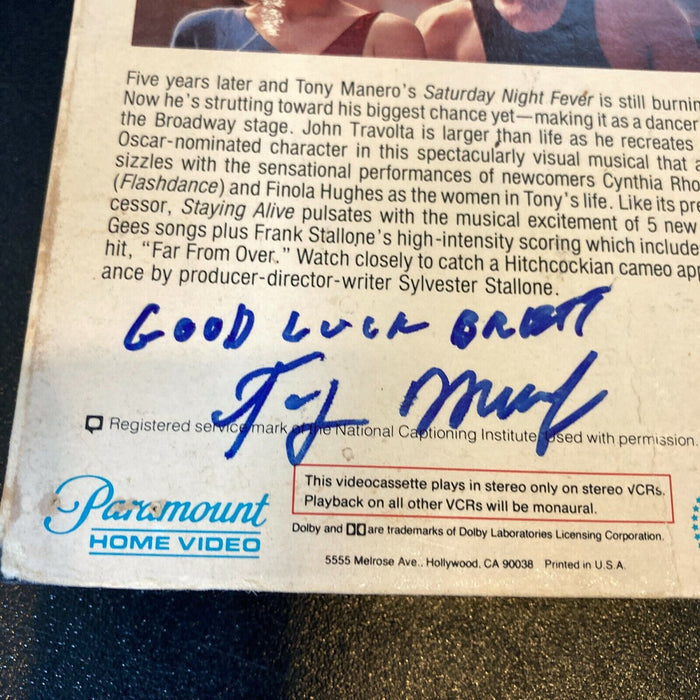 Five years later and Tony Manero's Saturday Night Fever is still burnin
Now he's strutting toward his biggest chance yet—making it as a dancer
the Broadway stage. John Travolta is larger than life as he recreates
Oscar-nominated character in this spectacularly visual musical that a
sizzles with the sensational performances of newcomers Cynthia Rho
(Flashdance) and Finola Hughes as the women in Tony's life. Like its pre
cessor, Staying Alive pulsates with the musical excitement of 5 new
Gees songs plus Frank Stallone's high-intensity scoring which include
hit, "Far From Over." Watch closely to catch a Hitchcockian cameo app
ance by producer-director-writer Sylvester Stallone.
GOOD LUCK BRETT
Registered service mark of the National Captioning Institute. Used with permission.
This videocassette plays in stereo only on stereo VCRs.
Playback on all other VCRs will be monaural.
Paramount
HOME VIDEO
Dolby and DD are trademarks of Dolby Laboratories Licensing Corporation.
5555 Melrose Ave., Hollywood, CA 90038 Printed in U.S.A.